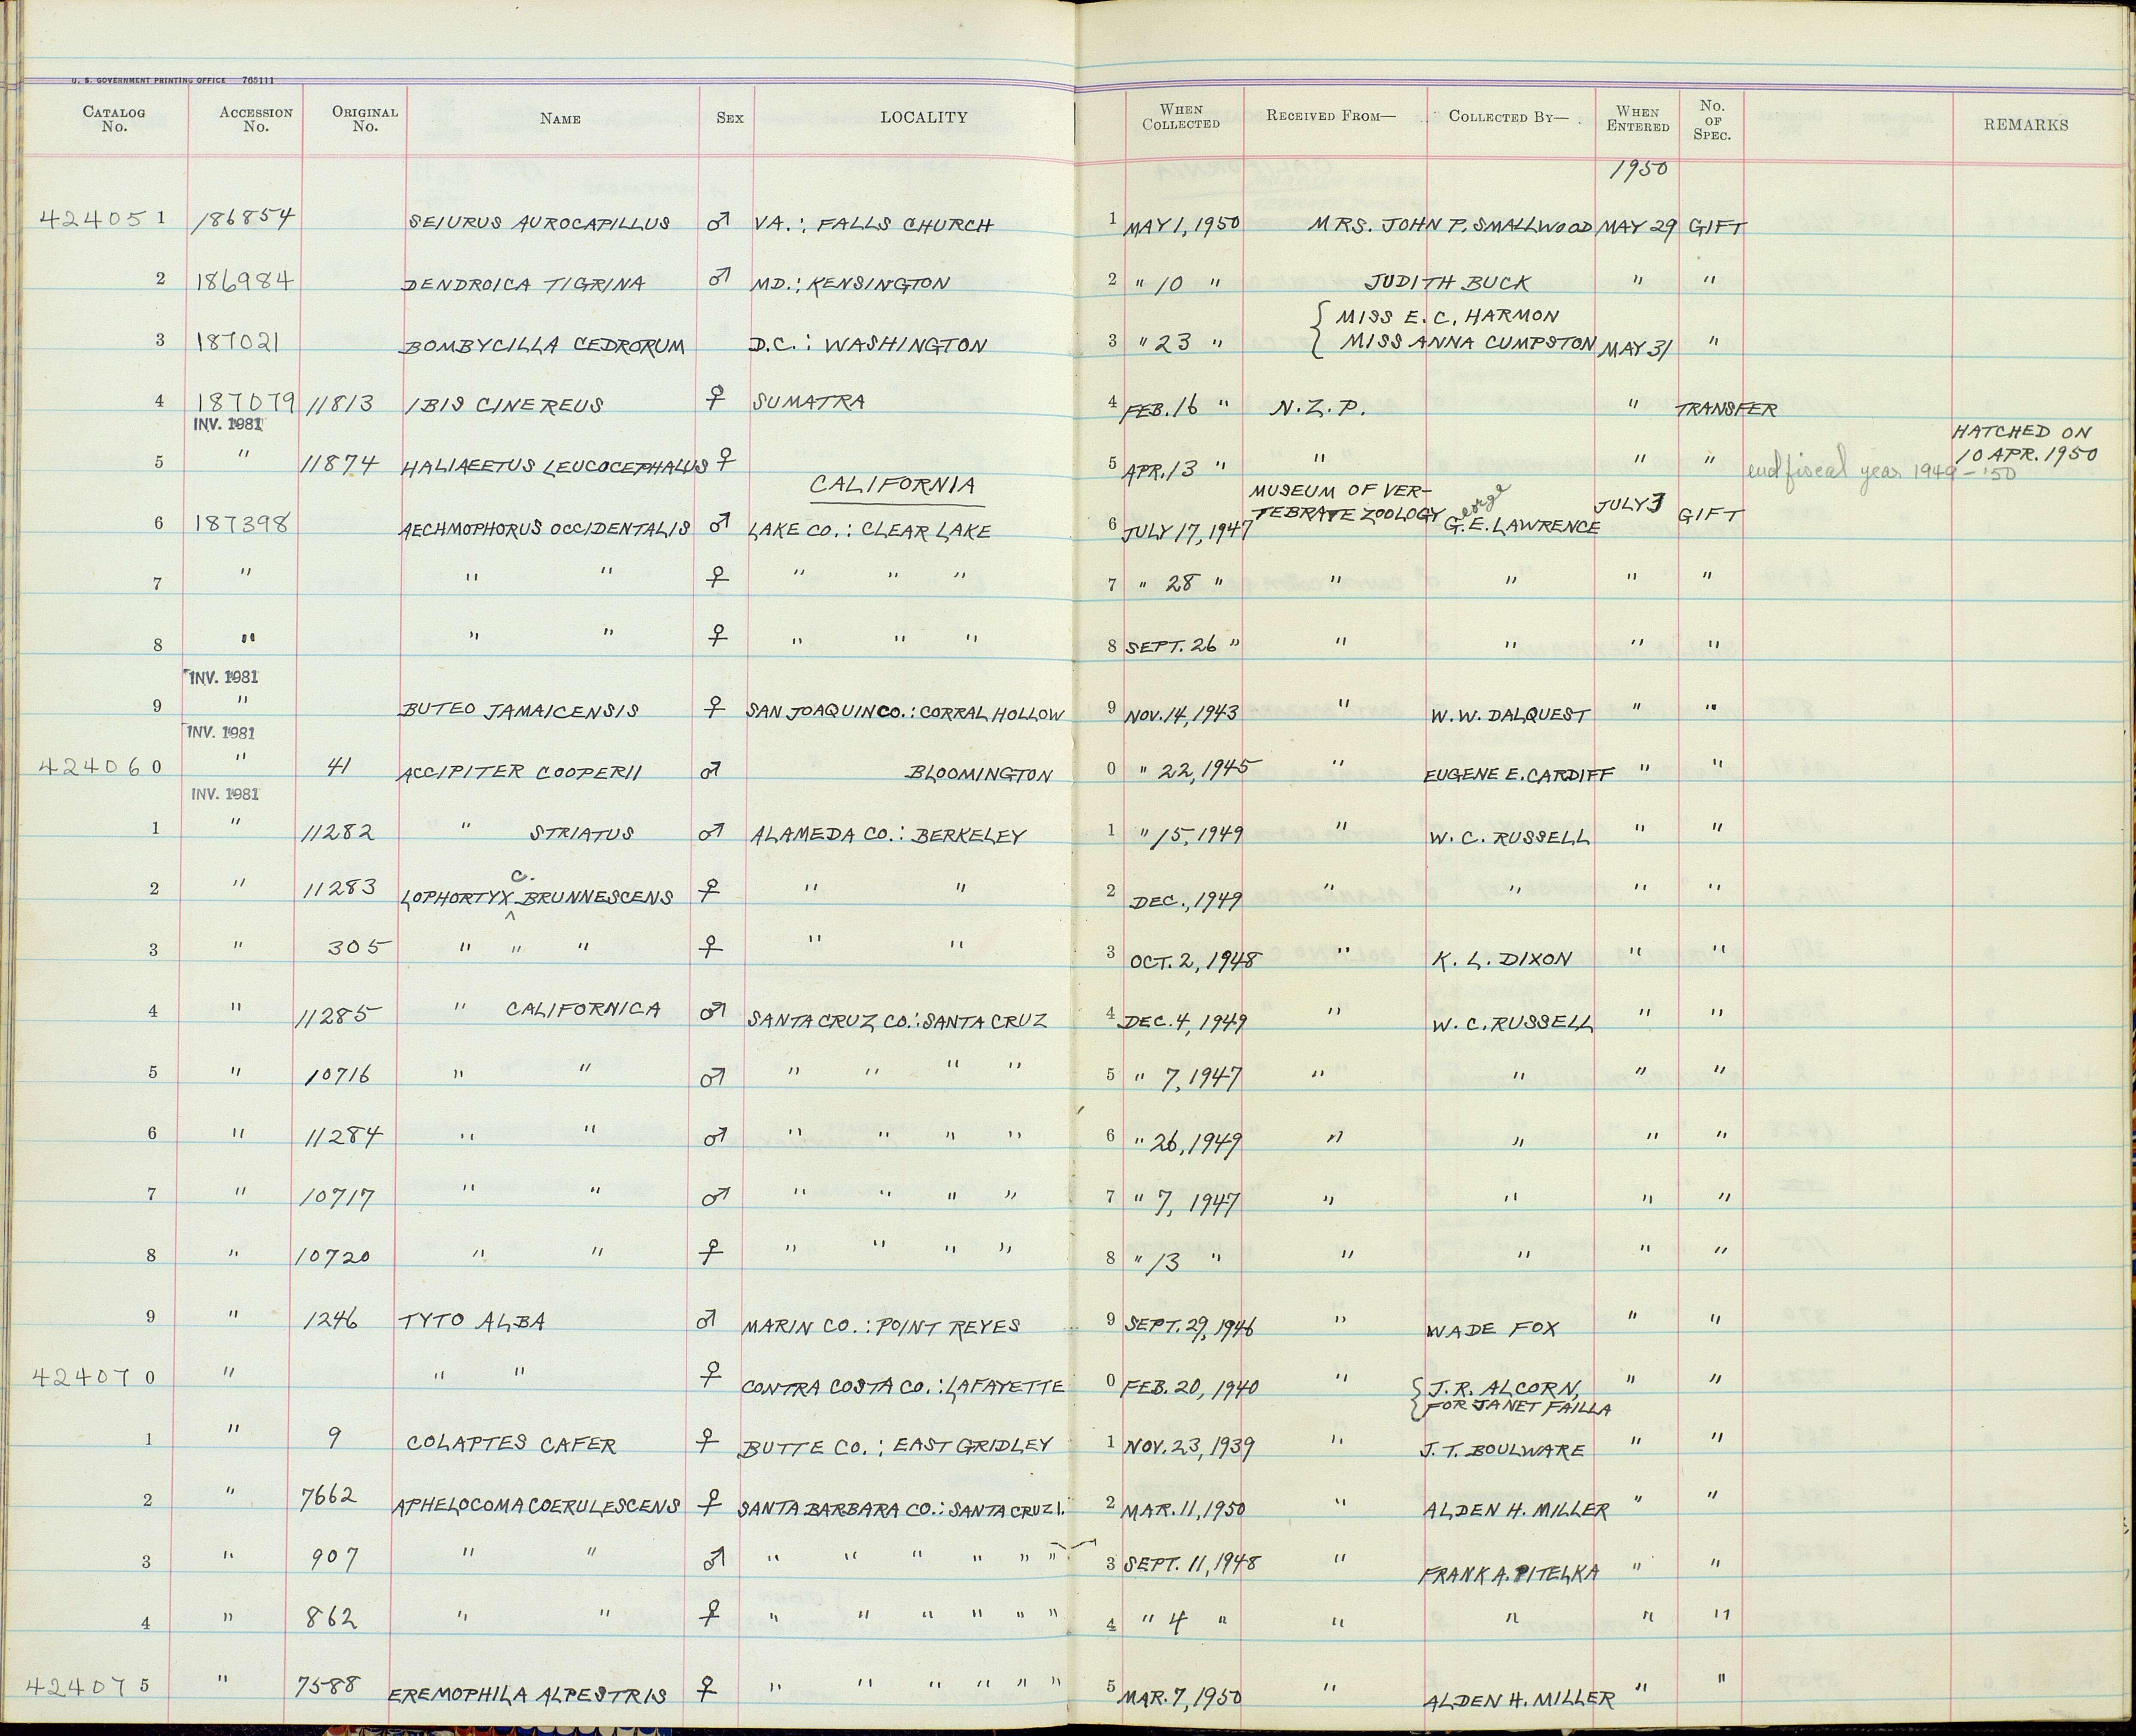 U. S. GOVERNMENT PRINTING OFFICE 765111
CATALOG No. ACCESSION No. ORIGINAL No. NAME SEX LOCALITY WHEN COLLECTED RECEIVED FROM— COLLECTED BY— WHEN ENTERED No. OF SPEC. REMARKS
1950
424051 186854 SEIURUS AUROCAPILLUS ♂ VA.: FALLS CHURCH 1 MAY 1, 1950 MRS. JOHN P. SMALLWOOD MAY 29 GIFT
2 186984 DENDROICA TIGRINA ♂ MD.: KENSINGTON 2 " 10 " JUDITH BUCK " "
{ MISS E. C. HARMON
3 187021 BOMBYCILLA CEDRORUM D.C.: WASHINGTON 3 " 23 " MISS ANNA CUMPSTON MAY 31 "
4 187079 11813 IBIS CINEREUS ♀ SUMATRA 4 FEB. 16 " N.Z.P. " TRANSFER
INV. 1981
HATCHED ON
5 " 11874 HALIAEETUS LEUCOCEPHALUS ♀ 5 APR. 13 " " " " 10 APR. 1950
end fiscal year 1949-'50
CALIFORNIA
MUSEUM OF VER-
eorge
6 187398 AECHMOPHORUS OCCIDENTALIS ♂ LAKE CO.: CLEAR LAKE 6 JULY 17, 1947 TEBRATE ZOOLOGY G.E. LAWRENCE JULY 3 GIFT
7 " " " ♀ " " " 7 " 28 " " " " "
8 " " " ♀ " " " 8 SEPT. 26 " " " " "
INV. 1981
9 " BUTEO JAMAICENSIS ♀ SAN JOAQUIN CO.: CORRAL HOLLOW 9 NOV. 14, 1943 " W.W. DALQUEST " "
INV. 1981
424060 " 41 ACCIPITER COOPERII ♂ BLOOMINGTON 0 " 22, 1945 " EUGENE E. CARDIFF " "
INV. 1981
1 " 11282 " STRIATUS ♂ ALAMEDA CO.: BERKELEY 1 " 15, 1949 " W. C. RUSSELL " "
C.
2 " 11283 LOPHORTYX ^ BRUNNESCENS ♀ " " 2 DEC., 1949 " " " "
3 " 305 " " " ♀ " " 3 OCT. 2, 1948 " K. L. DIXON " "
4 " 11285 " CALIFORNICA ♂ SANTA CRUZ CO.: SANTA CRUZ 4 DEC. 4, 1949 " W. C. RUSSELL " "
5 " 10716 " " ♂ " " " " 5 " 7, 1947 " " " "
6 " 11284 " " ♂ " " " " 6 " 26, 1949 " " " "
7 " 10717 " " ♂ " " " " 7 " 7, 1947 " " " "
8 " 10720 " " ♀ " " " " 8 " 13 " " " " "
9 " 1246 TYTO ALBA ♂ MARIN CO.: POINT REYES 9 SEPT. 29, 1946 " WADE FOX " "
424070 " " " ♀ CONTRA COSTA CO.: LAFAYETTE 0 FEB. 20, 1940 " { J. R. ALCORN, " "
FOR JANET FAILLA
1 " 9 COLAPTES CAFER ♀ BUTTE CO.: EAST GRIDLEY 1 NOV. 23, 1939 " J. T. BOULWARE " "
2 " 7662 APHELOCOMA COERULESCENS ♀ SANTA BARBARA CO.: SANTA CRUZ I. 2 MAR. 11, 1950 " ALDEN H. MILLER " "
3 " 907 " " ♂ " " " " " " 3 SEPT. 11, 1948 " FRANK A. PITELKA " "
4 " 862 " " ♀ " " " " " " 4 " 4 " " " " "
424075 " 7588 EREMOPHILA ALPESTRIS ♀ " " " " " " 5 MAR. 7, 1950 " ALDEN H. MILLER " "